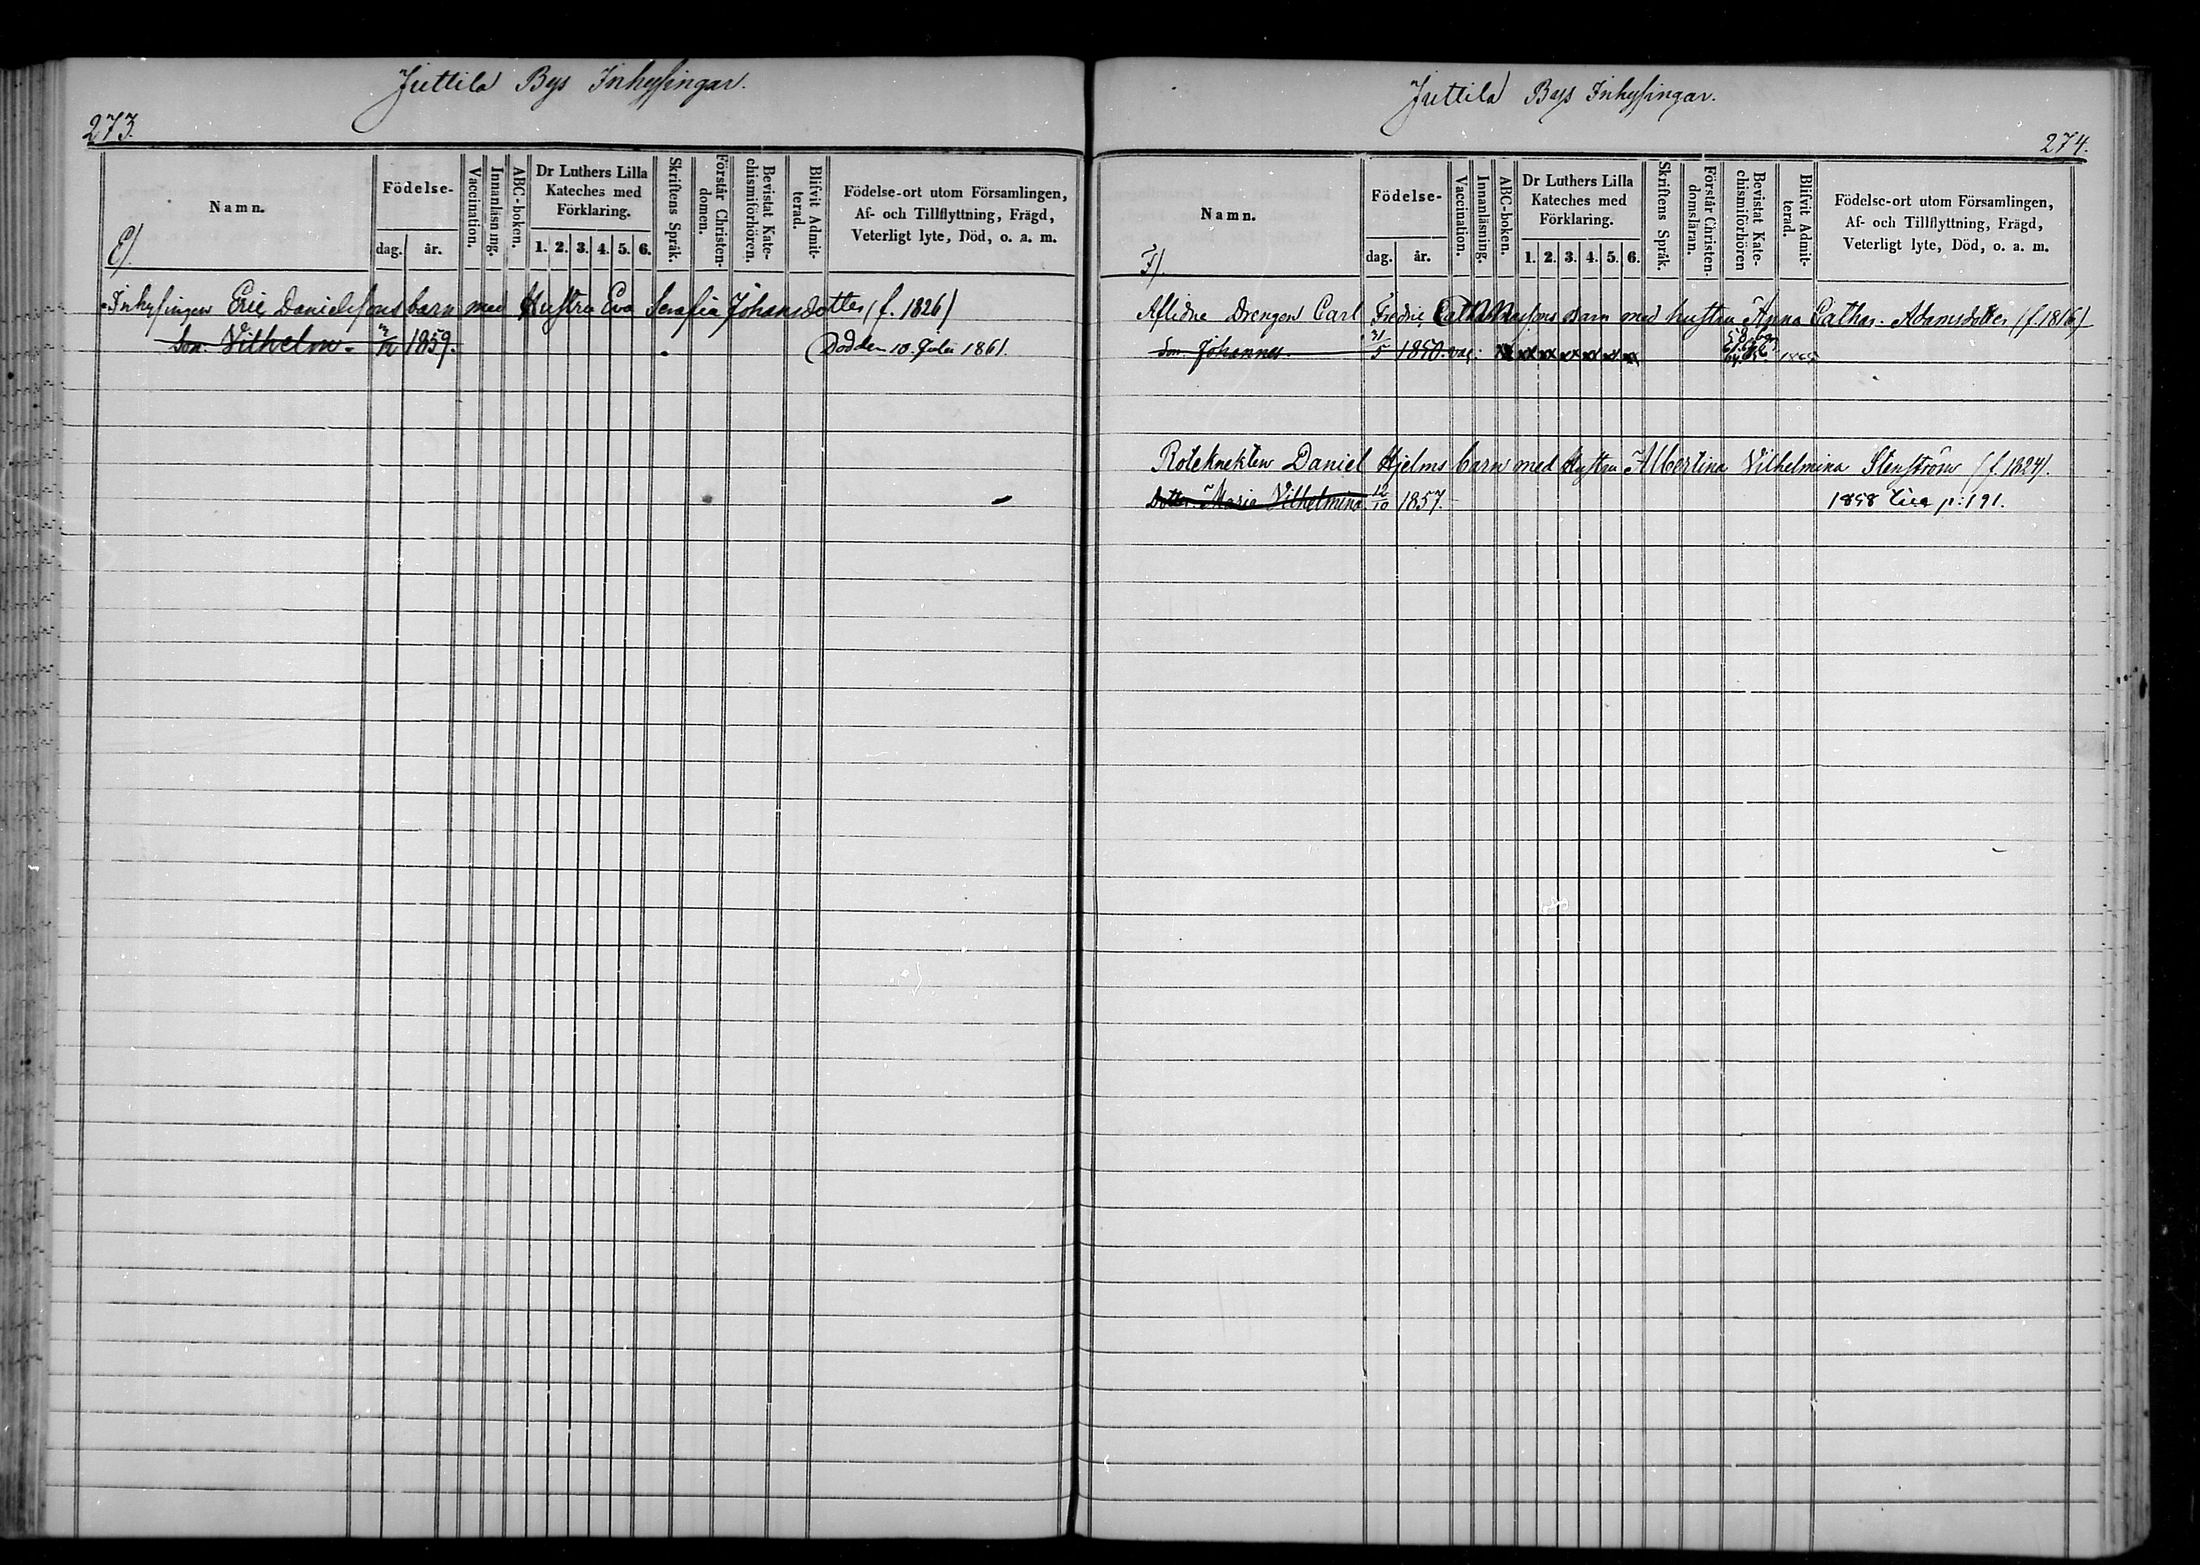 Juttila Bys Inhysingar.
273.
Namn.
E).
Födelse-
dag.
år.
Vaccination.
Innanläsning.
ABC-boken.
Dr Luthers Lilla
Kateches med
Förklaring.
1. 2. 3. 4. 5. 6.
Skriftens Språk.
Förstår Christen-
domen.
Bevistat Kate-
chismiförhören.
Blifvit Admit-
terad.
Födelse-ort utom Församlingen,
Af- och Tillflyttning, Frägd,
Veterligt lyte, Död, o. a. m.
Inhysingen Eric Danielssons barn med Hustru Eva Serafia Johansdotter (f. 1826)
Son. Vilhelm. 1859. Död den 10 Juli 1861.
Juttila Bys Inhysingar.
274.
Namn.
F).
Födelse-
dag.
år.
Vaccination.
Innanläsning.
ABC-boken.
Dr Luthers Lilla
Kateches med
Förklaring.
1. 2. 3. 4. 5. 6.
Skriftens Språk.
Förstår Christen-
domsläran.
Bevistat Kate-
chismiförhören
Blifvit Admit-
terad.
Födelse-ort utom Församlingen,
Af- och Tillflyttning, Frägd,
Veterligt lyte, Död, o. a. m.
Aflidne Drengen Carl Fredric barn med hustru Anna Cathar. Adamsdotter (f. 1816)
Son. Johannes. 1850. vac.
Roteknekten Daniel Hjelms barn med Hustru Albertina Vilhelmina Stenström (f. 1824).
Dotter. Maria Vilhelmina. 12/10 1857. 1858 p: 191.